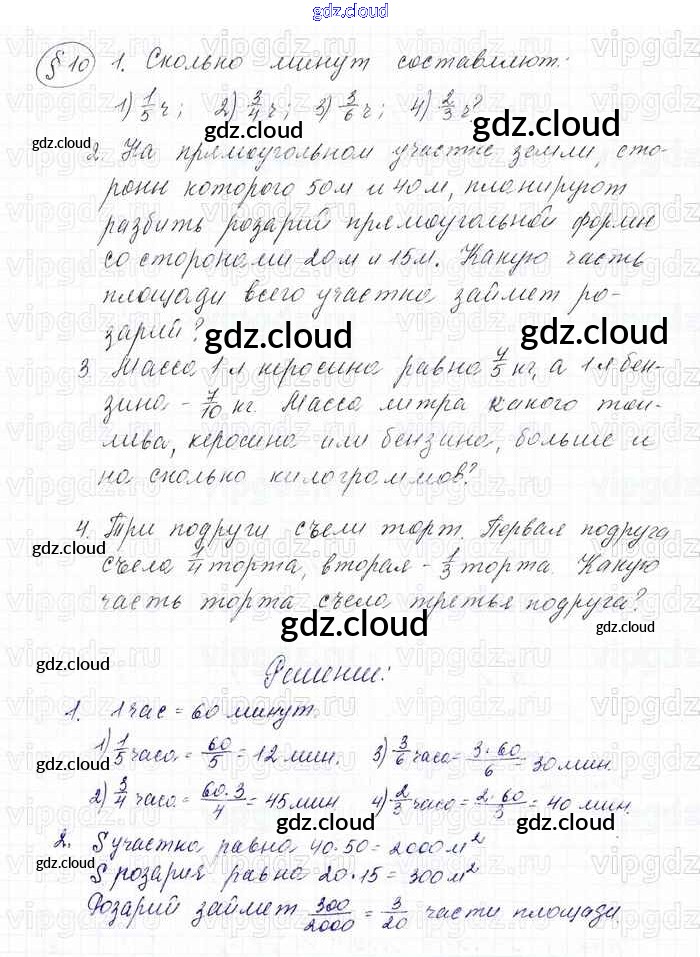 gdz.cloud
§ 10 1. Сколько минут составляют:
1) 1/5 ч; 2) 3/4 ч; 3) 3/6 ч; 4) 2/3 ч?
2. На прямоугольном участке земли, сто-
роны которого 50м и 40м, планируют
разбить розарий прямоугольной формы
со сторонами 20м и 15м. Какую часть
площади всего участка займет ро-
зарий?
3 Масса 1л керосина равна 4/5 кг, а 1л бен-
зина - 7/10 кг. Масса литра какого топ-
лива, керосина или бензина, больше и
на сколько килограммов?
4. Три подруги съели торт. Первая подруга
съела 1/4 торта, вторая - 1/3 торта. Какую
часть торта съела третья подруга?
Решение:
1. 1 час = 60 минут.
1) 1/5 часа = 60/5 = 12 мин. 3) 3/6 часа = 3·60/6 = 30 мин.
2) 3/4 часа = 60·3/4 = 45 мин 4) 2/3 часа = 2·60/3 = 40 мин.
2. S участка равна 40·50 = 2000 м²
S розария равна 20·15 = 300 м²
Розарий займет 300/2000 = 3/20 части площади.